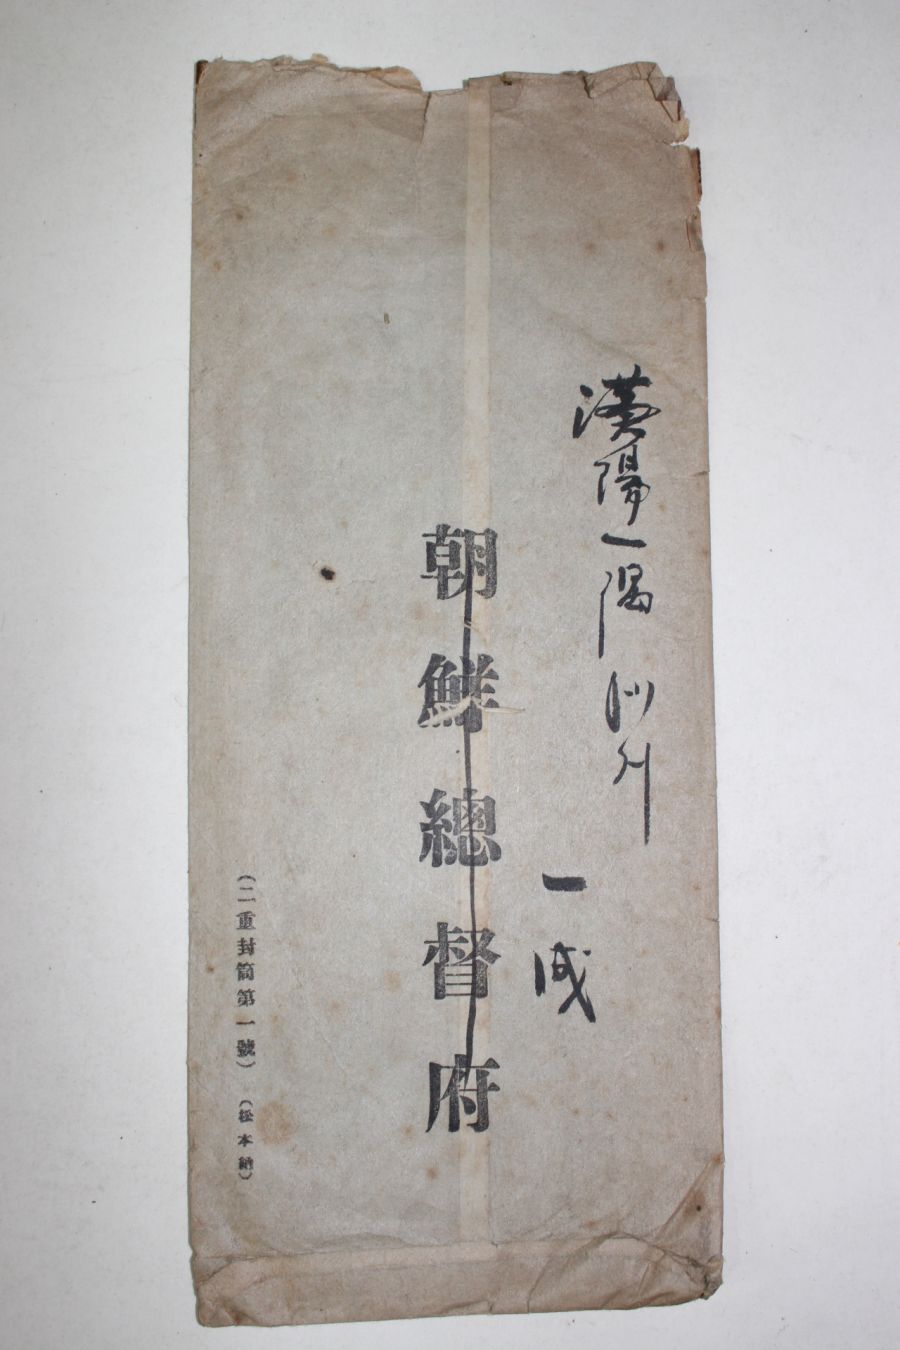 漢陽一隅
一成
朝鮮總督府
(二重封筒第一號) (松本納)